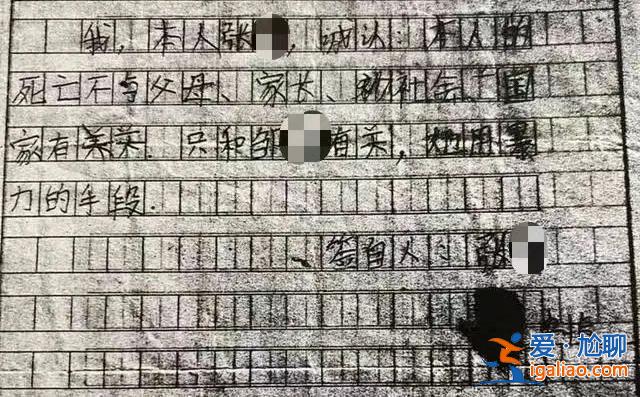 我，本人张，诚认：本人的
死亡不与父母、家长、和社会、国
家有关关．只和邹有关，她用暴
力的手段．
签自人：张
爱·尬聊
igaliao.com